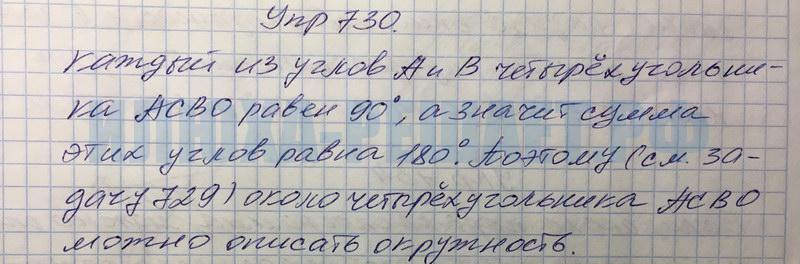 Упр 730.
Каждый из углов А и В четырёхугольни-
ка АСВО равен 90°, а значит сумма
этих углов равна 180°. Поэтому (см. за-
дачу 729) около четырёхугольника АСВО
можно описать окружность.